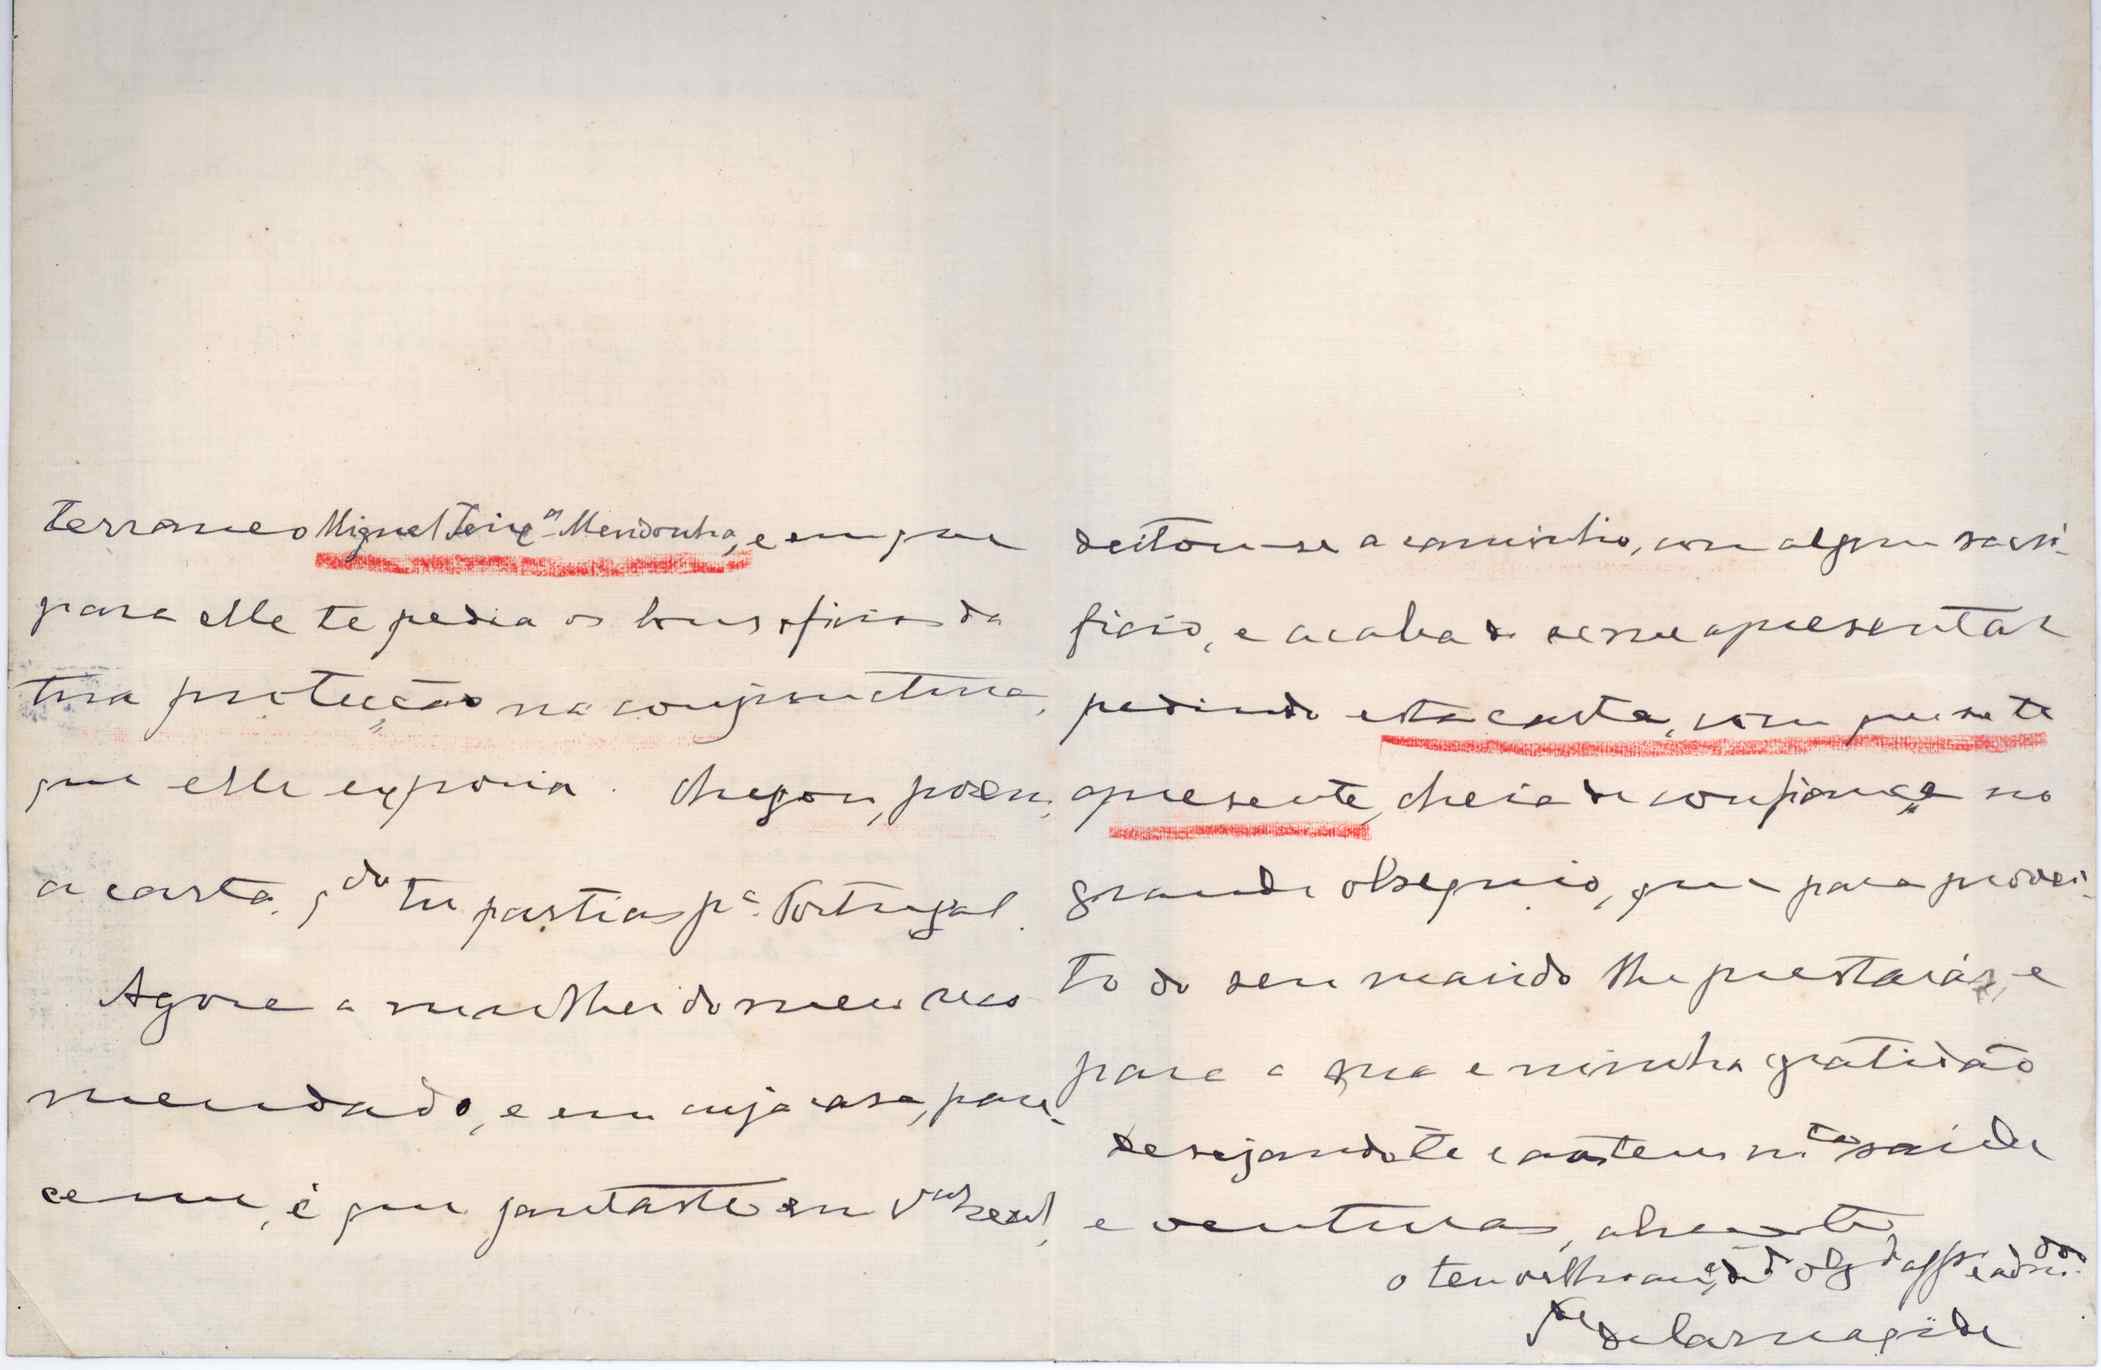 terraneo Miguel Teixª Mendonha, e em que
para elle te pedia os bons officios da
tua protecção na conjunctura,
que elle exporia. Chegou, porem,
a carta, qdo tu partias pª Portugal.
Agora a mulher do meu reco
mendado, e em cuja casa, pare-
ce-me, é que jantaste em Vª Real,
deitou-se a caminho, com algum sacri-
ficio, e acaba de se me apresentar
pedindo esta carta, com que se te
apresente, cheia de confiança no
grande obsequio, que para provei-
to do seu marido lhe prestarás, e
para a sua e minha gratidão
Desejando-te e aos teus mtª saude
e venturas, abraça-te
o teu velho am.º